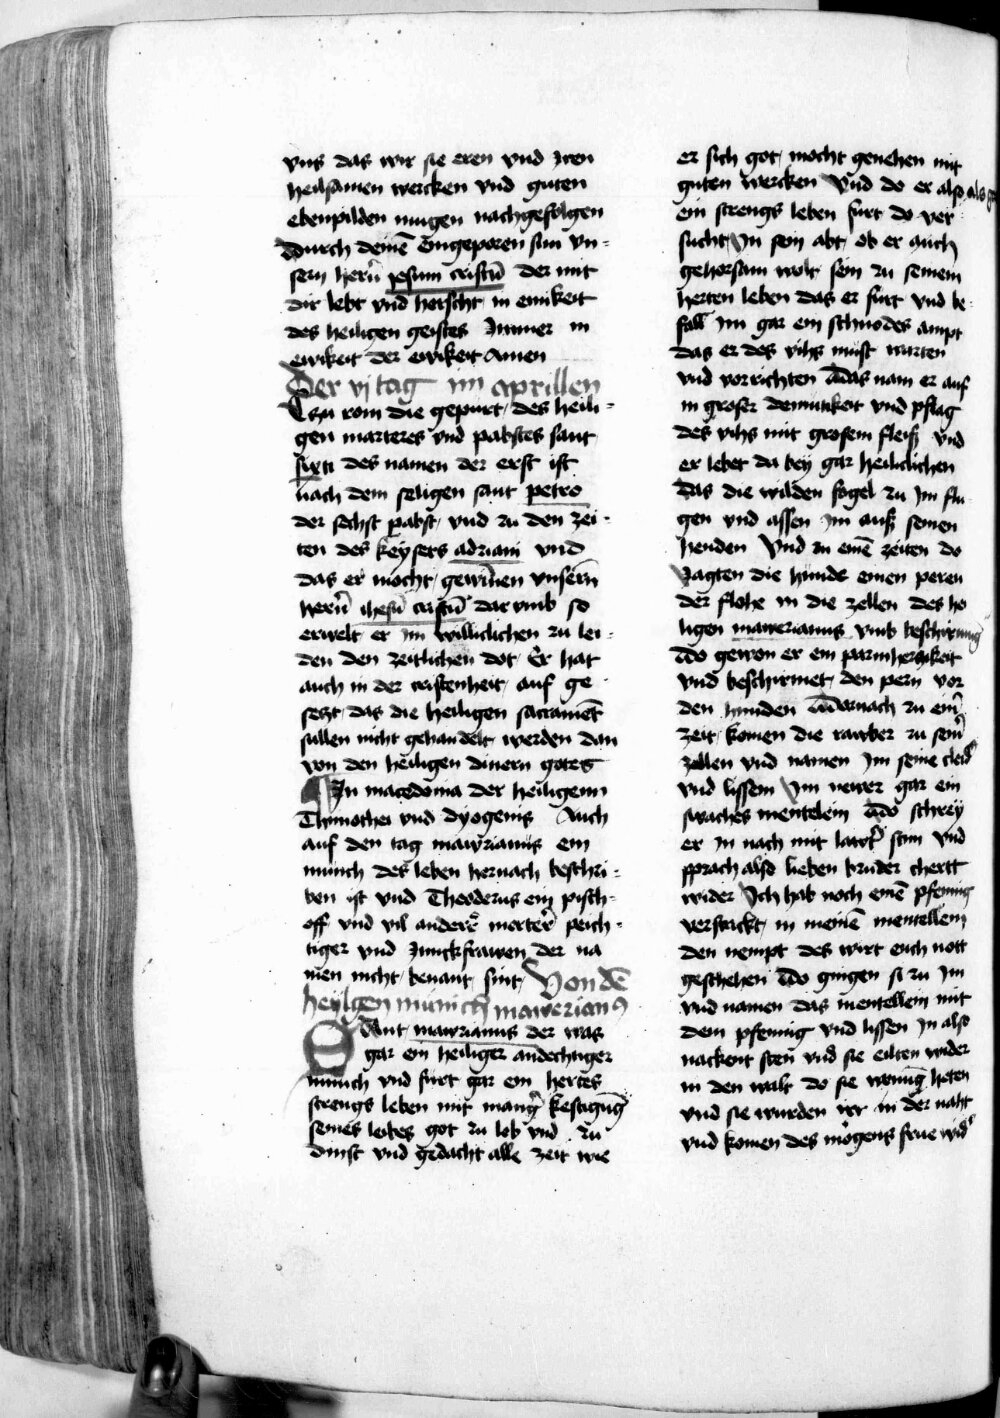 vns das wir sie eren vnd jren
heilsamen wercken vnd guten
ebenpilden mugen nachgefolgen
durch deinē eingeporen sun vn-
sern hern̄ jesum cristū der mit
dir lebt vnd herscht in einikeit
des heiligen geistes Jmmer in
ewikeit der ewikeit Amen
Der vj tag im aprillen
Czu rom die gepurt des heili-
gen marteres vnd pabstes sant
sixti des namen der erst ist
nach dem seligen sant petro
der sechst pabst vnd zu den zei-
ten des keysers adriani vnd
das er mocht gewin̄en vnsern̄
hern̄ ihesū cristū dar vmb so
erwelt er im williclichen zu lei-
den den zeitlichen dot Er hat
auch in der cristenheit auf ge-
setzt das die heiligen sacramēt
sullen nicht gehandelt werden dan
von den heiligen dinern gotes
Jn macedonia der heiligenn
Thimothei vnd dyogenis Auch
auf den tag mawrianus ein
munch des leben hernach beschri-
ben ist vnd Theoderus ein pisch-
off vnd vil anderē merter̄ peich-
tiger vnd Junckfrawen der na
men nicht benant sint Von dē
heylgen munich mawerianꝰ
Sant mawrianus der was
gar ein heiliger andechtiger
munich vnd furt gar ein hertes
strengs leben mit manḡ kestigūg
seines leibes got zu lob vnd zu
dinst vnd gedacht alle zeit wie
er sich got mocht genehen mit
guten wercken Vnd do er also als gr
ein strengs leben furt do ver
sucht Jn sein abt ob er auch
gehorsam wolt sein zu seinem
herten leben das er furt vnd be-
fall im gar ein schnodes ampt
das er des vihs must warten
vnd vorrichten Das nam er auf
in groser demutikeit vnd pflag
des vihs mit grosem fleiß vnd
er lebet da bey gar heiliclichen
das die wilden fogel zu Jm flu
gen vnd assen im auß seinen
henden Vnd zu einē zeiten do
Jagten die hunde einen peren
der flohe in die zellen des he
ligen mawerianus vmb beschirmung
Do gewon er ein parmherzikeit
vnd beschirmet den pern vor
den hunden Darnach zu ein̄
zeit komen die rawber zu sein̄
zellen vnd namen Jm seine cleid
vnd lissem Jm newer gar ein
swaches mentelein Do schrey
er Jn nach mit lawt̄ stim vnd
sprach also lieben bruder chertt
wider Jch hab noch einē pfennig
versteckt in meinē mentellein
den nempt des wirt euch nott
geschehen Do gingen si zu Jm
vnd namen das mentellein mit
dem pfennig vnd lissen Jn also
nackent sten vnd sie eilten wider
in den walt do sie wonūg heten
vnd sie wurden irr in der naht
vnd komen des mogens frue wid̄